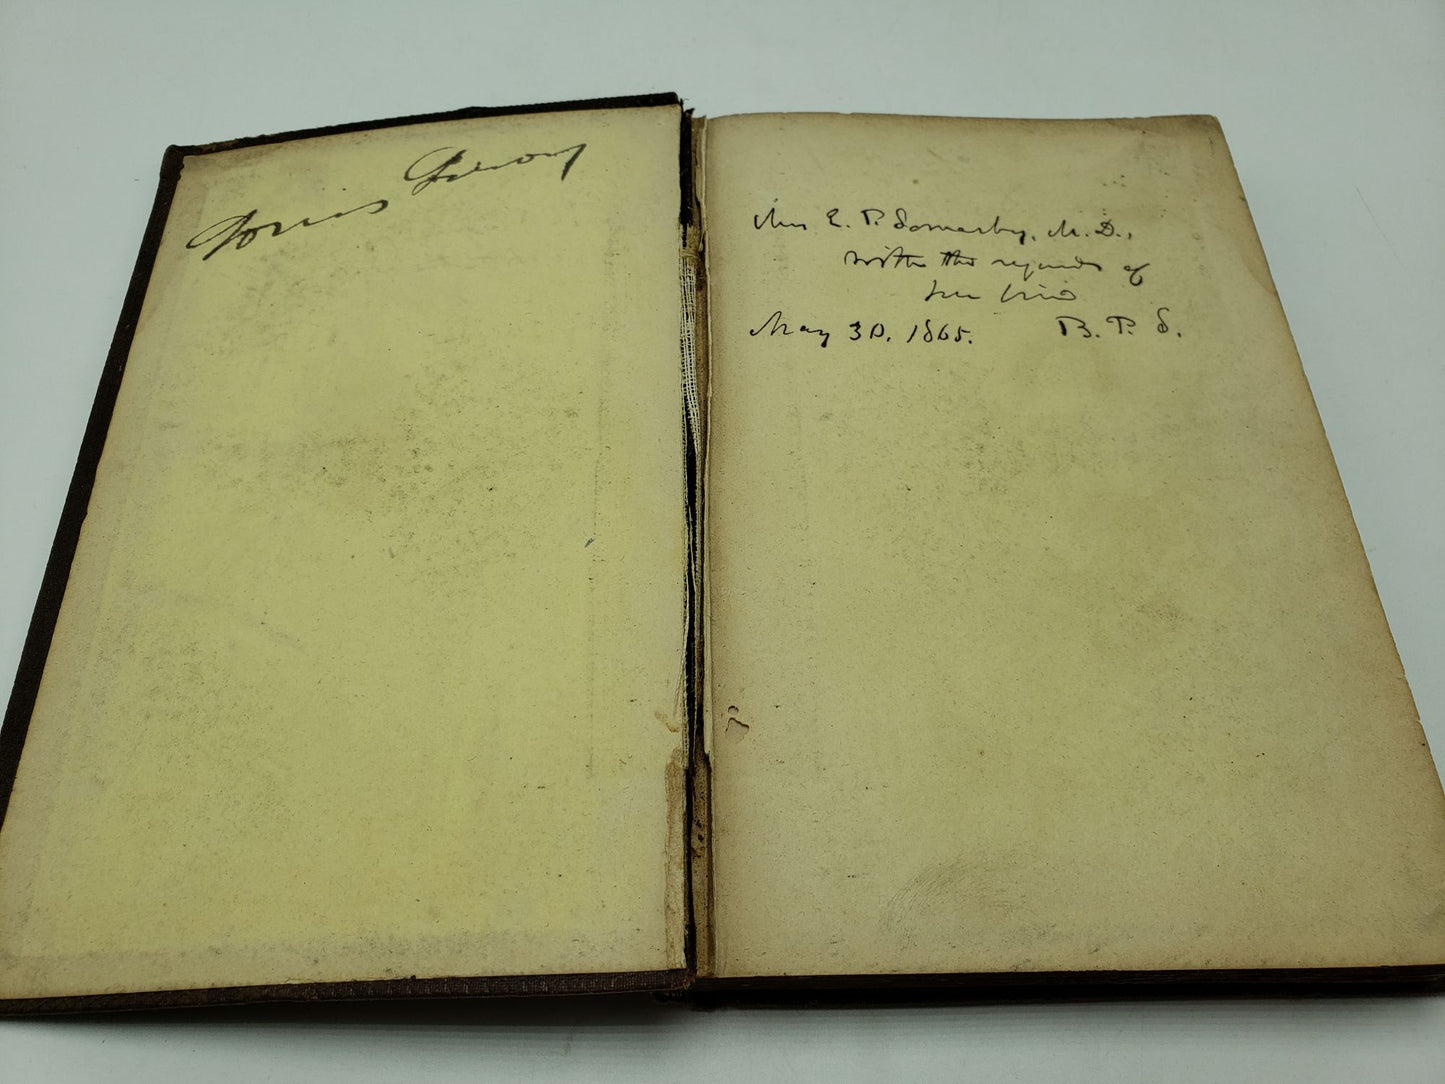 Louis
E. P. Somerby, M. D.,
with the regards of
May 30, 1865. B. P. S.